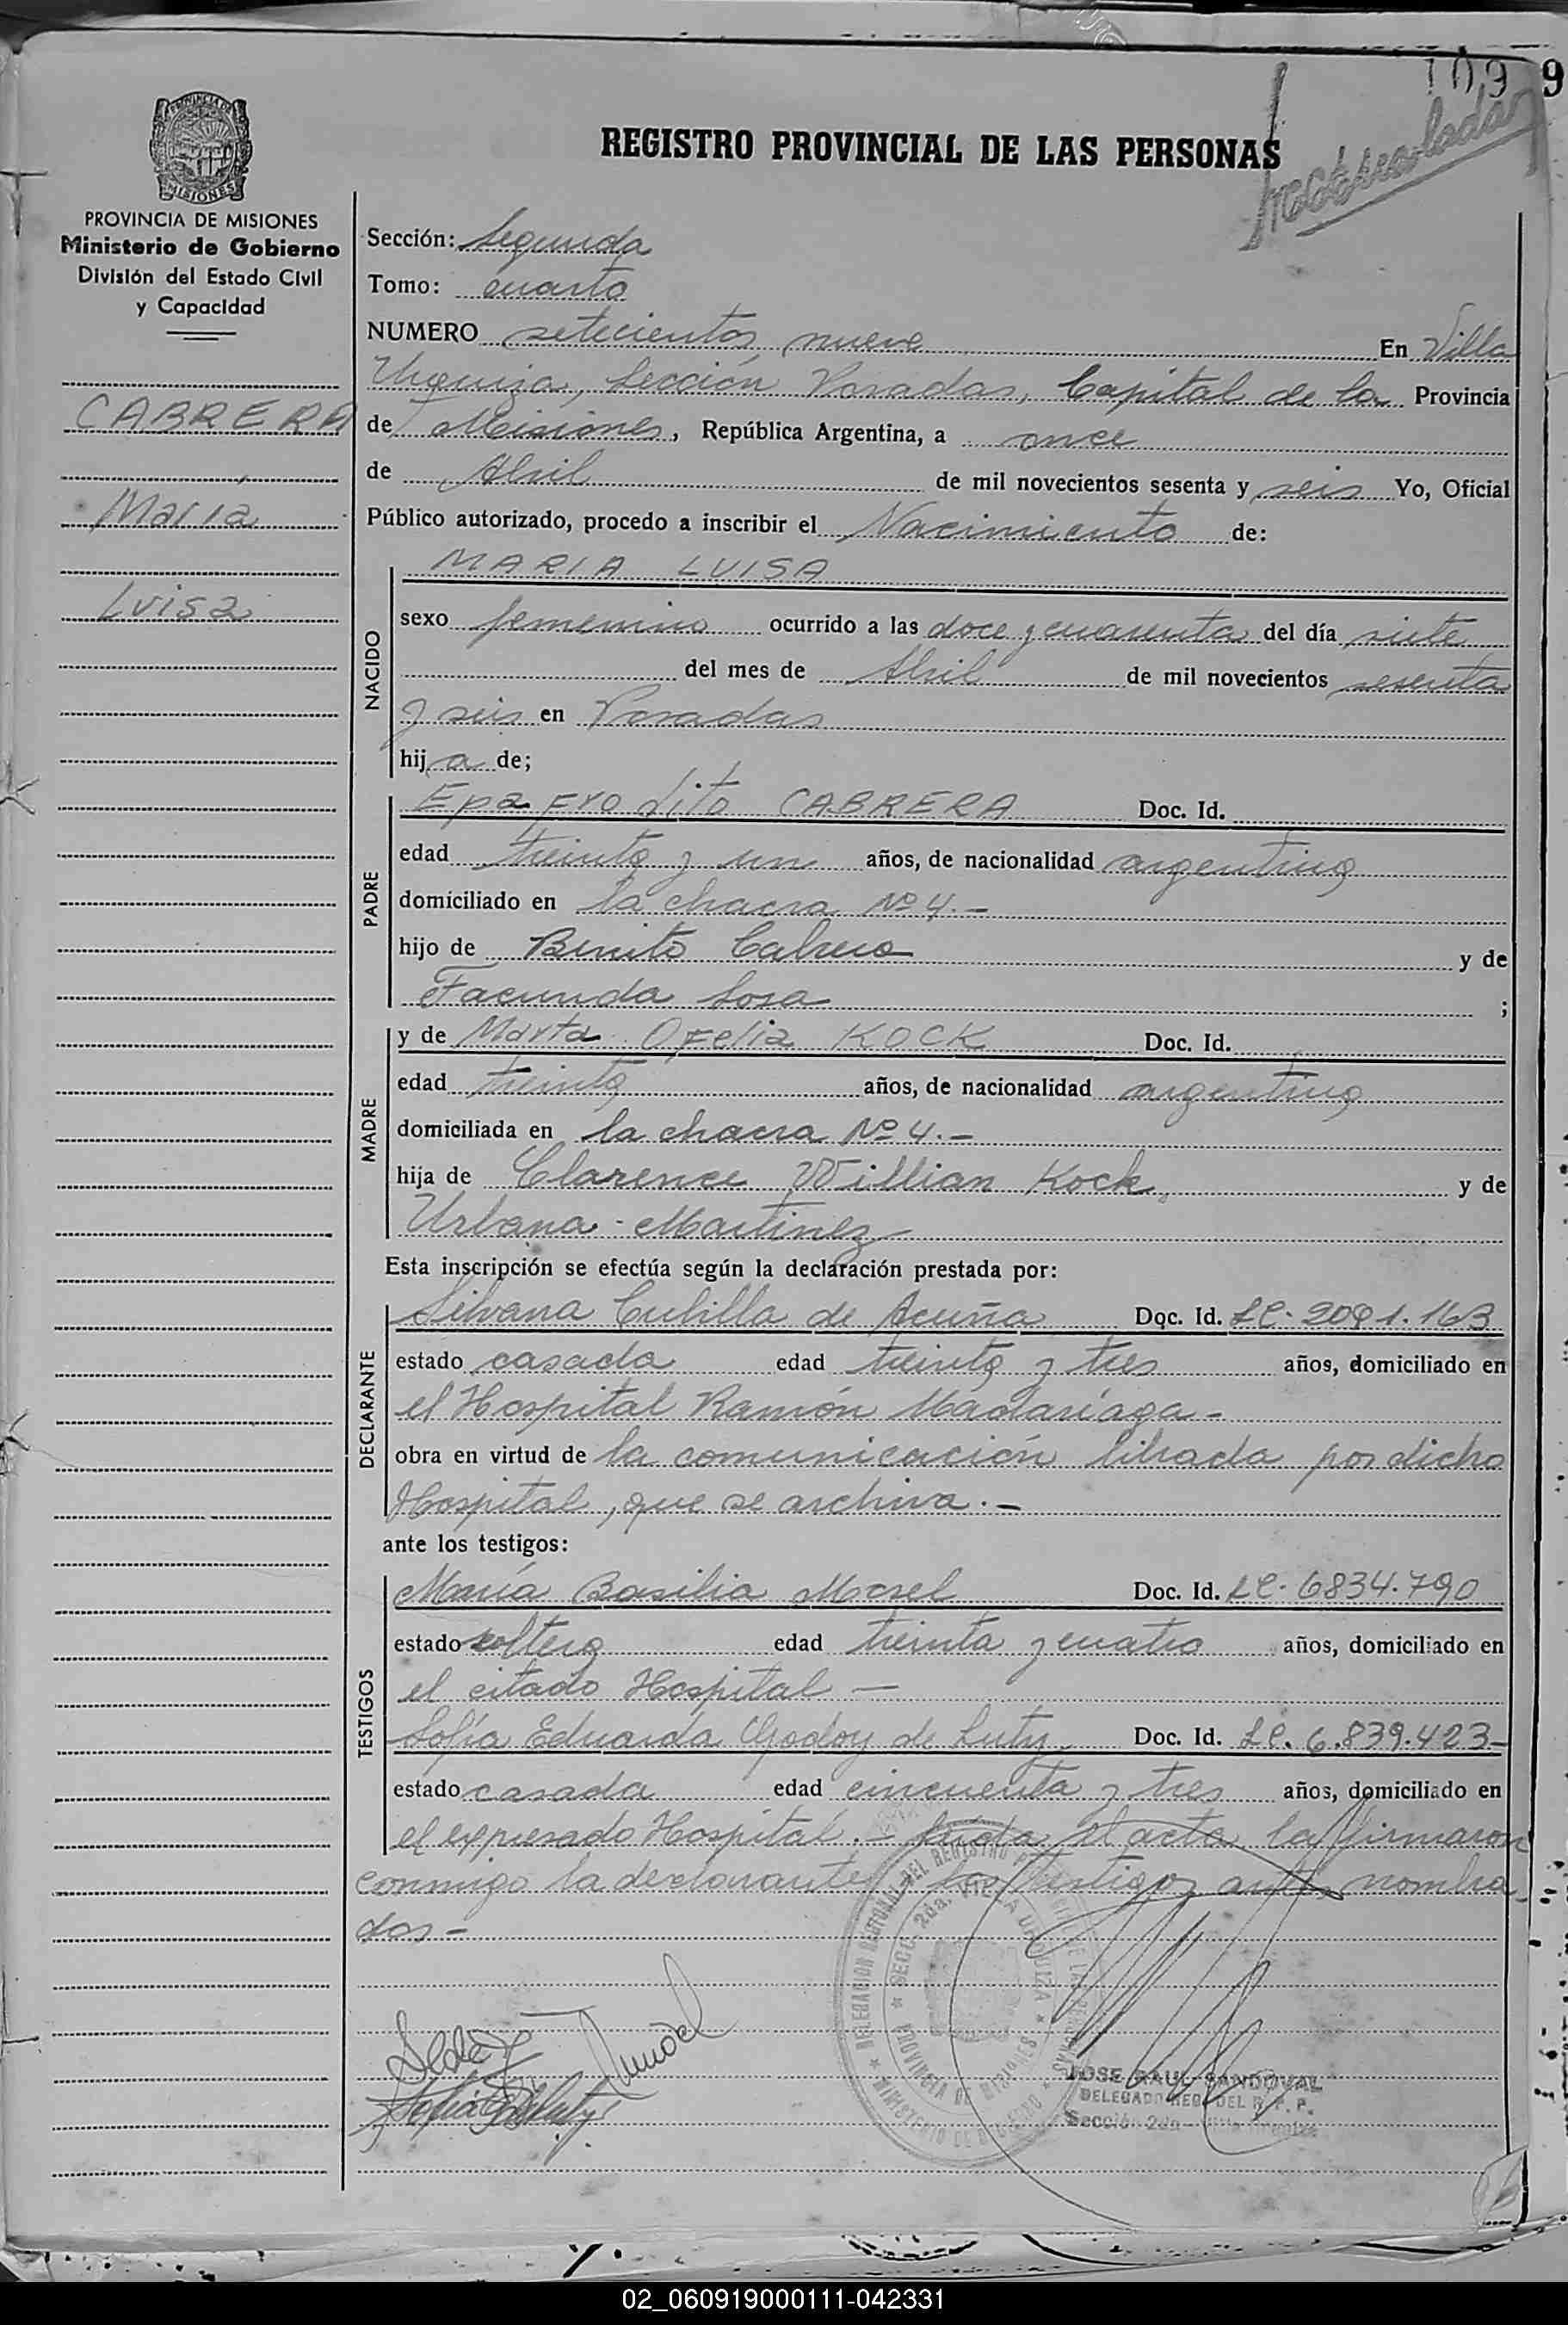 109 9
Matriculada
REGISTRO PROVINCIAL DE LAS PERSONAS
PROVINCIA DE MISIONES
Ministerio de Gobierno
División del Estado Civil
y Capacidad
CABRERA
María
Luisa
Sección: Segunda
Tomo: cuarto
NUMERO setecientos nueve En Villa
Urquiza, Sección Posadas, Capital de la Provincia
de Misiones, República Argentina, a once
de Abril de mil novecientos sesenta y seis Yo, Oficial
Público autorizado, procedo a inscribir el Nacimiento de:
NACIDO
MARIA LUISA
sexo femenino ocurrido a las doce y cuarenta del día siete
del mes de Abril de mil novecientos sesenta
y seis en Posadas
hija de;
PADRE
Epafrodito CABRERA Doc. Id.
edad treinta y un años, de nacionalidad argentina
domiciliado en la chacra Nº 4.-
hijo de Benito Cabrera y de
Facunda Sosa ;
MADRE
y de Marta Ofelia KOCK Doc. Id.
edad treinta años, de nacionalidad argentina
domiciliada en la chacra Nº 4.-
hija de Clarence Willian Kock y de
Urbana Martinez
Esta inscripción se efectúa según la declaración prestada por:
DECLARANTE
Silvana Cubilla de Acuña Doc. Id. LC. 2091.163
estado casada edad treinta y tres años, domiciliado en
el Hospital Ramón Madariaga-
obra en virtud de la comunicación librada por dicho
Hospital, que se archiva.-
ante los testigos:
TESTIGOS
María Basilia Morel Doc. Id. LC. 6834.790
estado soltera edad treinta y cuatro años, domiciliado en
el citado Hospital —
Sofía Eduarda Godoy de Luty Doc. Id. LC. 6.839.423-
estado casada edad cincuenta y tres años, domiciliado en
el expresado Hospital.- Leída el acta la firmaron
conmigo la declarante y los testigos antes nombra-
dos-
DELEGACION REGIONAL DEL REGISTRO PROVINCIAL DE LAS PERSONAS
SECC. 2da. VILLA URQUIZA
PROVINCIA DE MISIONES
MINISTERIO DE GOBIERNO
JOSE RAUL SANDOVAL
DELEGADO REG. DEL R. P. P.
Sección 2da - Villa Urquiza
02_060919000111-042331